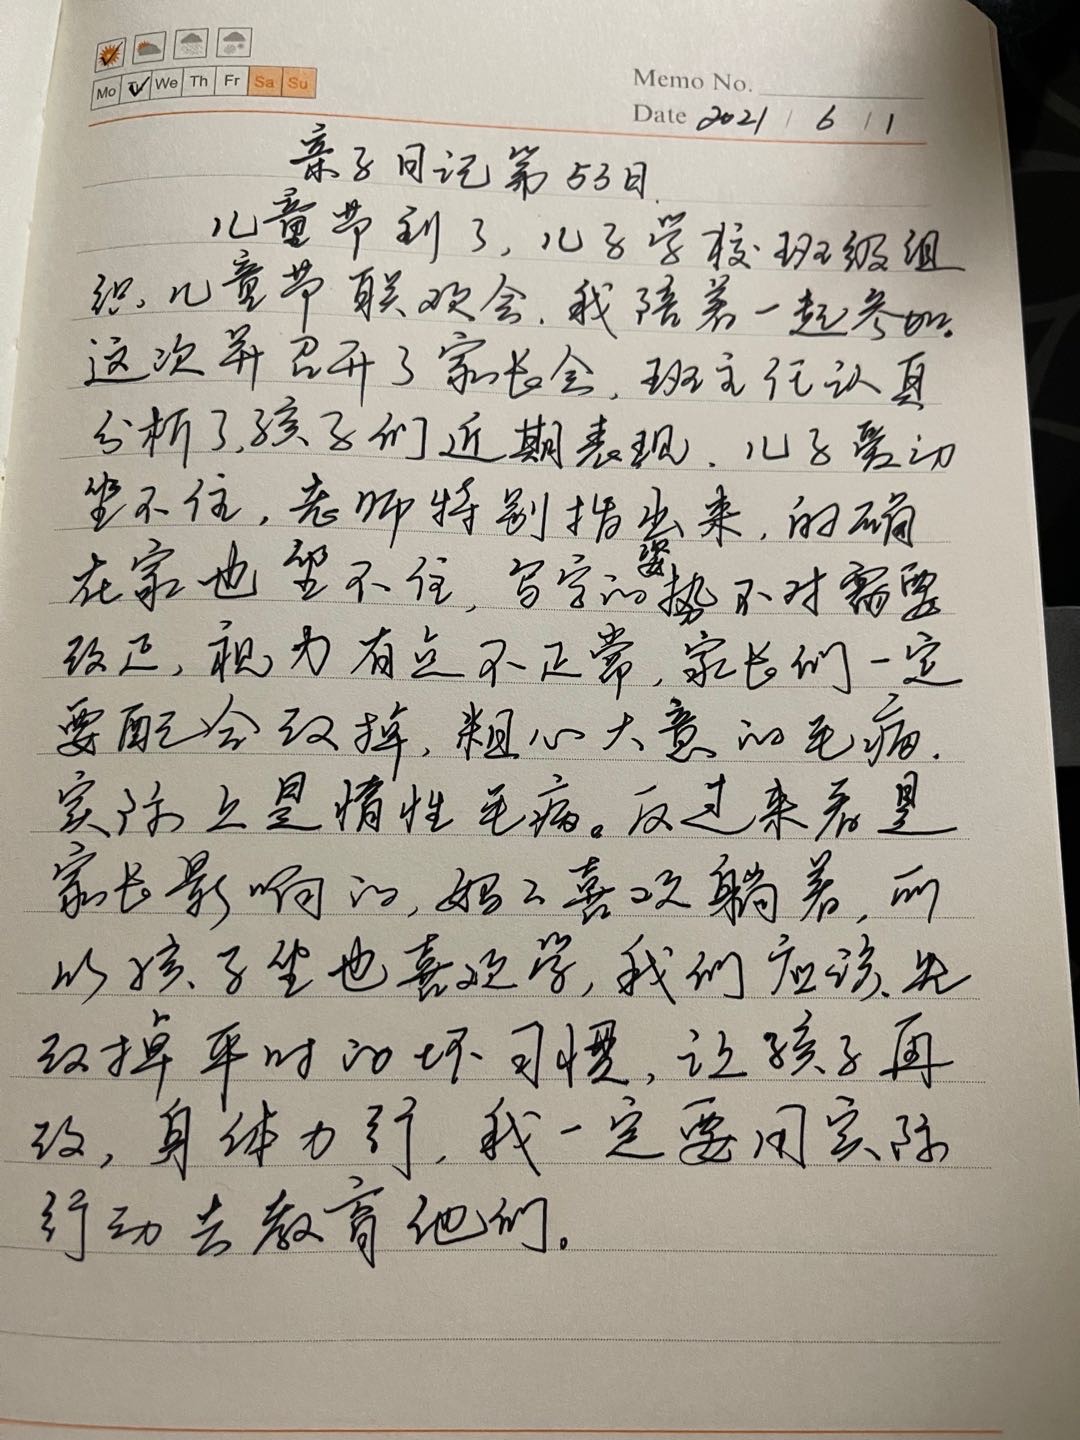 Mo Tu We Th Fr Sa Su
Memo No.
Date 2021 / 6 / 1
亲子日记第53日
儿童节到了,儿子学校班级组
织儿童节联欢会,我陪着一起参加。
这次并召开了家长会,班主任认真
分析了孩子们近期表现,儿子爱动
坐不住,老师特别指出来,的确
在家也坐不住,写字的姿势不对需要
改正,视力有点不正常,家长们一定
要配合改掉,粗心大意的毛病,
实际上是惰性毛病。反过来看是
家长影响的,妈妈喜欢躺着,所
以孩子坐也喜欢学,我们应该先
改掉平时的坏习惯,让孩子再
改,身体力行,我一定要用实际
行动去教育他们。